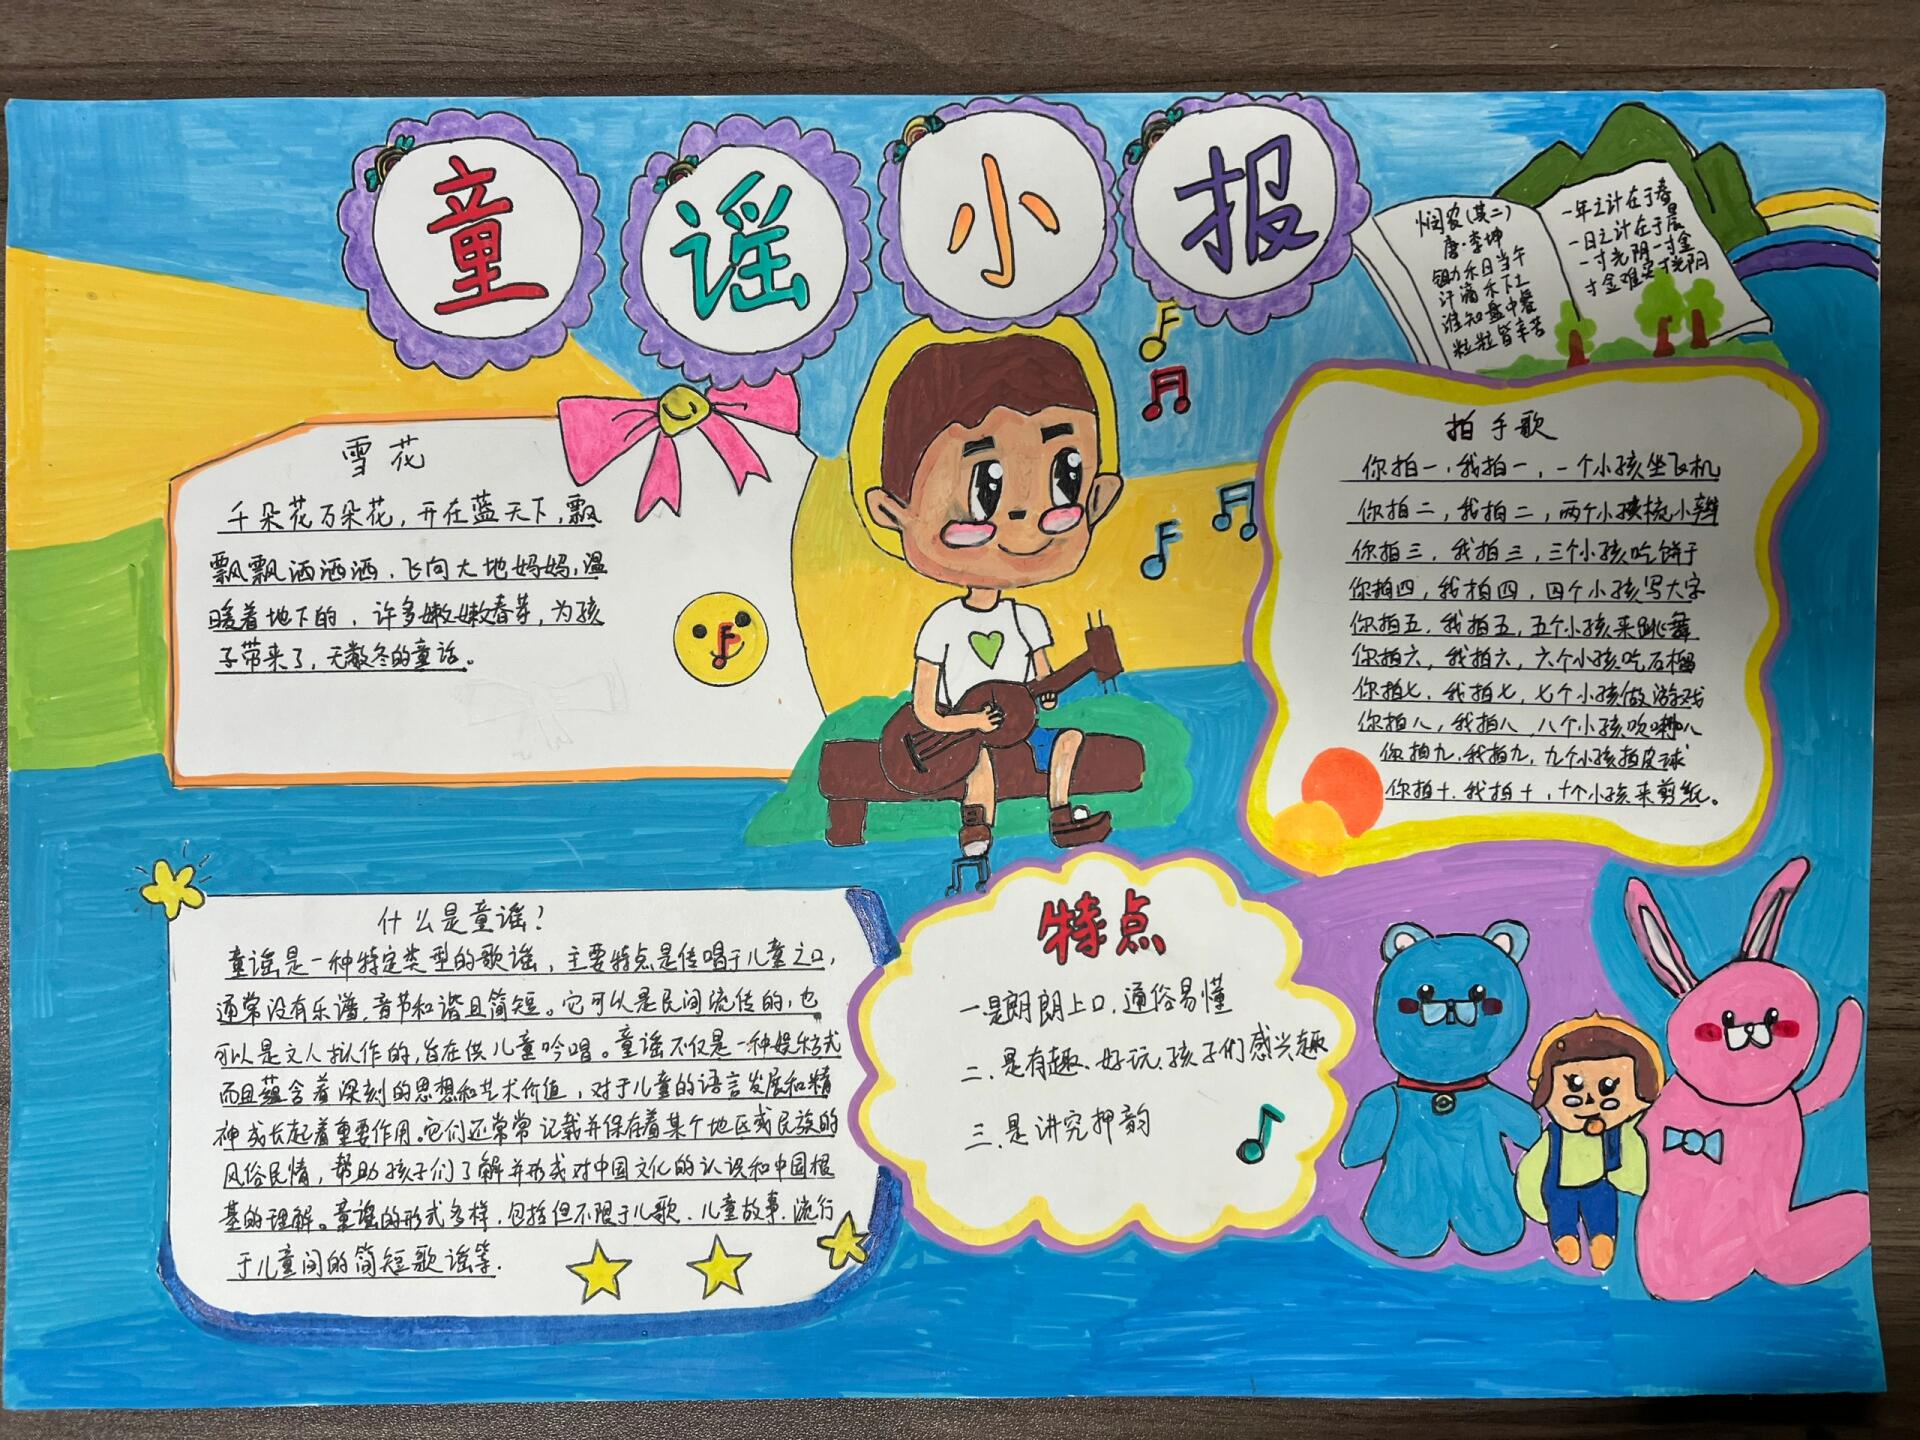 童谣小报
悯农(其二)
唐·李坤
锄禾日当午
汗滴禾下土
谁知盘中餐
粒粒皆辛苦
一年之计在于春
一日之计在于晨
一寸光阴一寸金
寸金难买寸光阴
雪花
千朵花万朵花,开在蓝天下,飘
飘飘洒洒洒,飞向大地妈妈,温
暖着地下的,许多嫩嫩春芽,为孩
子带来了,无数冬的童话。
拍手歌
你拍一,我拍一,一个小孩坐飞机
你拍二,我拍二,两个小孩梳小辫
你拍三,我拍三,三个小孩吃饼干
你拍四,我拍四,四个小孩写大字
你拍五,我拍五,五个小孩来跳舞
你拍六,我拍六,六个小孩吃石榴
你拍七,我拍七,七个小孩做游戏
你拍八,我拍八,八个小孩吹喇叭
你拍九,我拍九,九个小孩拍皮球
你拍十,我拍十,十个小孩来剪纸。
什么是童谣?
童谣是一种特定类型的歌谣,主要特点是传唱于儿童之口,
通常没有乐谱,音节和谐且简短。它可以是民间流传的,也
可以是文人拟作的,旨在供儿童吟唱。童谣不仅是一种娱乐方式
而且蕴含着深刻的思想和艺术价值,对于儿童的语言发展和精
神成长起着重要作用。它们还常常记载并保存着某个地区或民族的
风俗民情,帮助孩子们了解并形成对中国文化的认识和中国根
基的理解。童谣的形式多样,包括但不限于儿歌、儿童故事、流行
于儿童间的简短歌谣等.
特点
一是朗朗上口,通俗易懂
二.是有趣、好玩、孩子们感兴趣
三.是讲究押韵